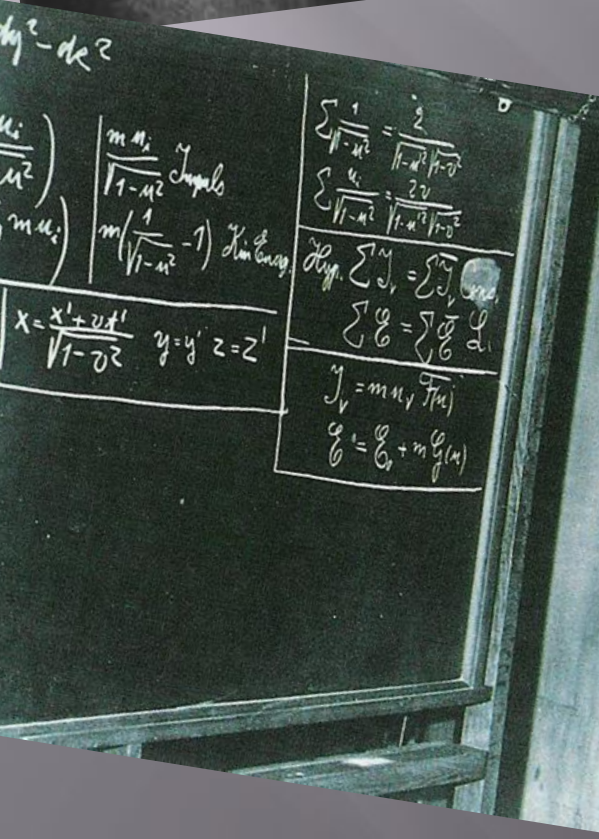 dy² - dz²
u_i / √1-u² )
m u_i )
m u_i / √1-u² Impuls
m( 1 / √1-u² - 1) Kin Energ.
x = x' + vt' / √1-v² y = y' z = z'
Σ 1 / √1-u² = 2 / √1-u² √1-v²
Σ u_i / √1-u² = 2v / √1-u² √1-v²
Hyp. Σ I_ν = Σ Ī_ν
Σ E = Σ Ē
I_ν = m u_ν F(u)
E = E₀ + m G(u)